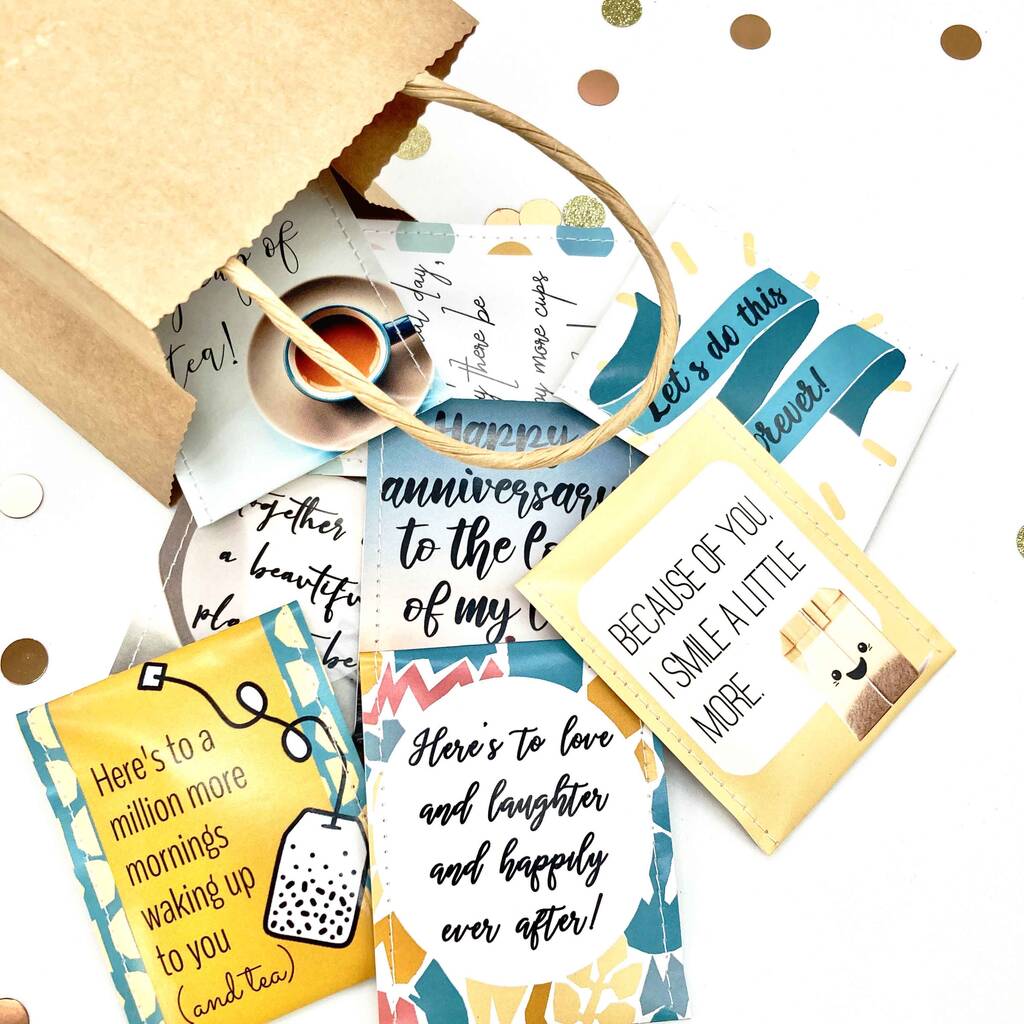 of
tea!
day,
there be
more cups
Let's do this
Happy
anniversary
to the
of my
together
a
be
BECAUSE OF YOU,
I SMILE A LITTLE
MORE.
Here's to a
million more
mornings
waking up
to you
(and tea)
Here's to love
and laughter
and happily
ever after!